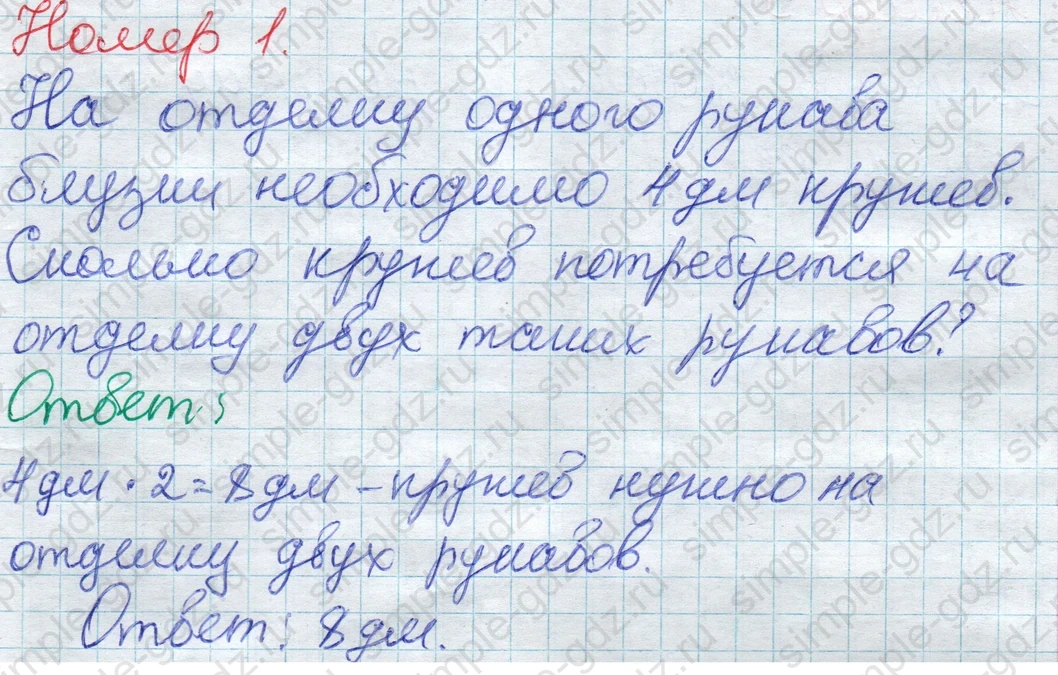 Номер 1.
На отделку одного рукава
блузки необходимо 4 дм кружев.
Сколько кружев потребуется на
отделку двух таких рукавов?
Ответ:
4 дм · 2 = 8 дм – кружев нужно на
отделку двух рукавов.
Ответ: 8 дм.
simple-gdz.ru